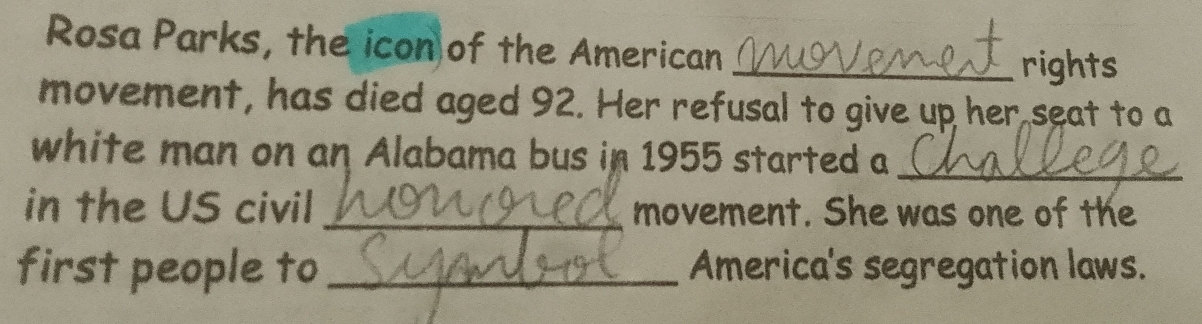 Rosa Parks, the icon of the American movenet rights
movement, has died aged 92. Her refusal to give up her seat to a
white man on an Alabama bus in 1955 started a Challege
in the US civil honored movement. She was one of the
first people to Symbol America's segregation laws.